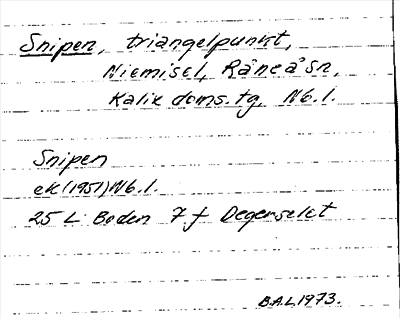 Snipen, triangelpunkt,
Niemisel, Råneå sn,
Kalix doms.tg, Nb.l.
Snipen
ek(1951)Nb.l.
25 L Boden 7 f Degerselet
B.A.L 1973.